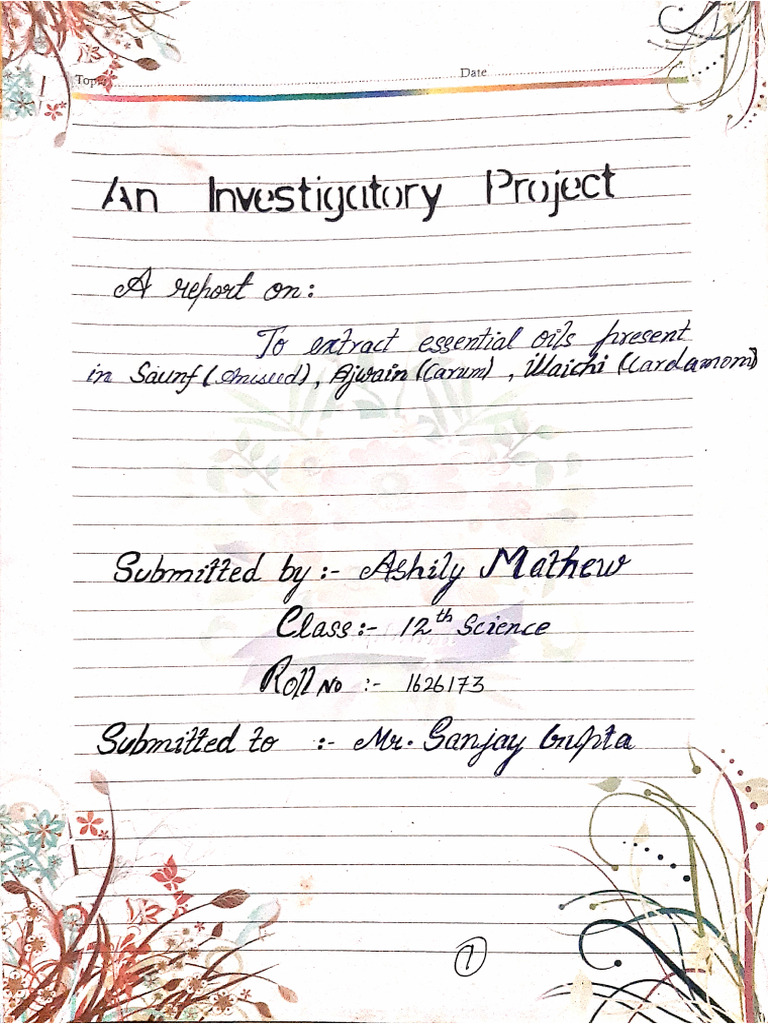 Topic Date
An Investigatory Project
A report on:
To extract essential oils present
in Saunf (Aniseed), Ajwain (Carum), Illaichi (Cardamom)
Submitted by :- Ashily Mathew
Class :- 12th Science
Roll No :- 1626173
Submitted to :- Mr. Sanjay Gupta
1